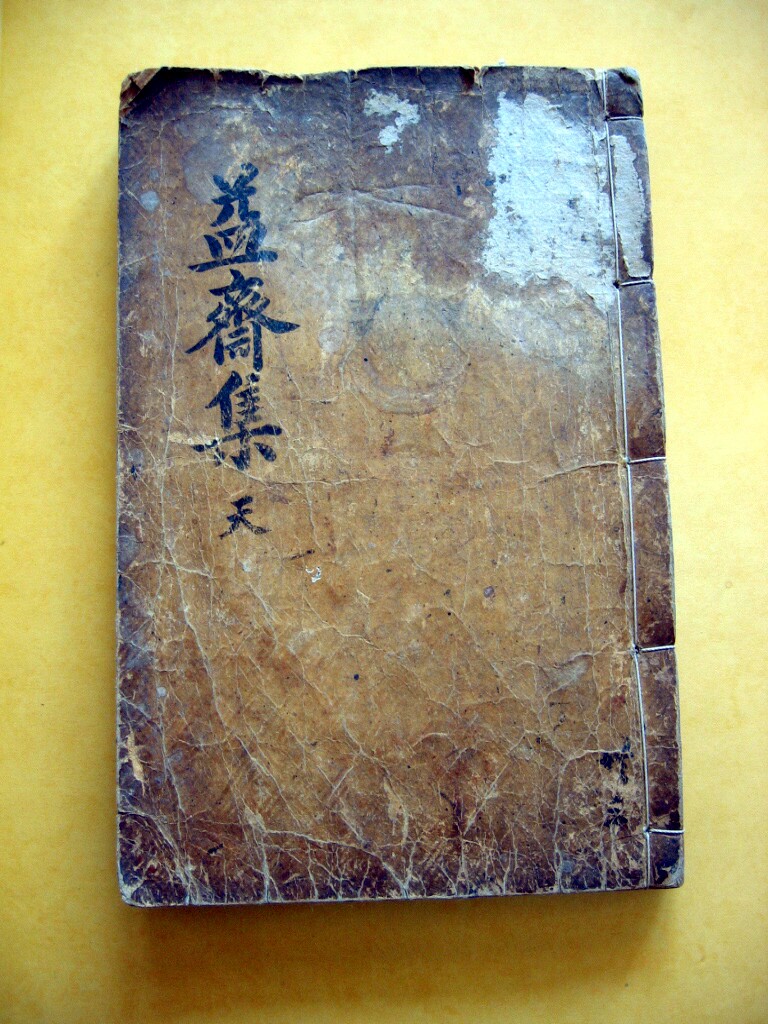 益齋集 天